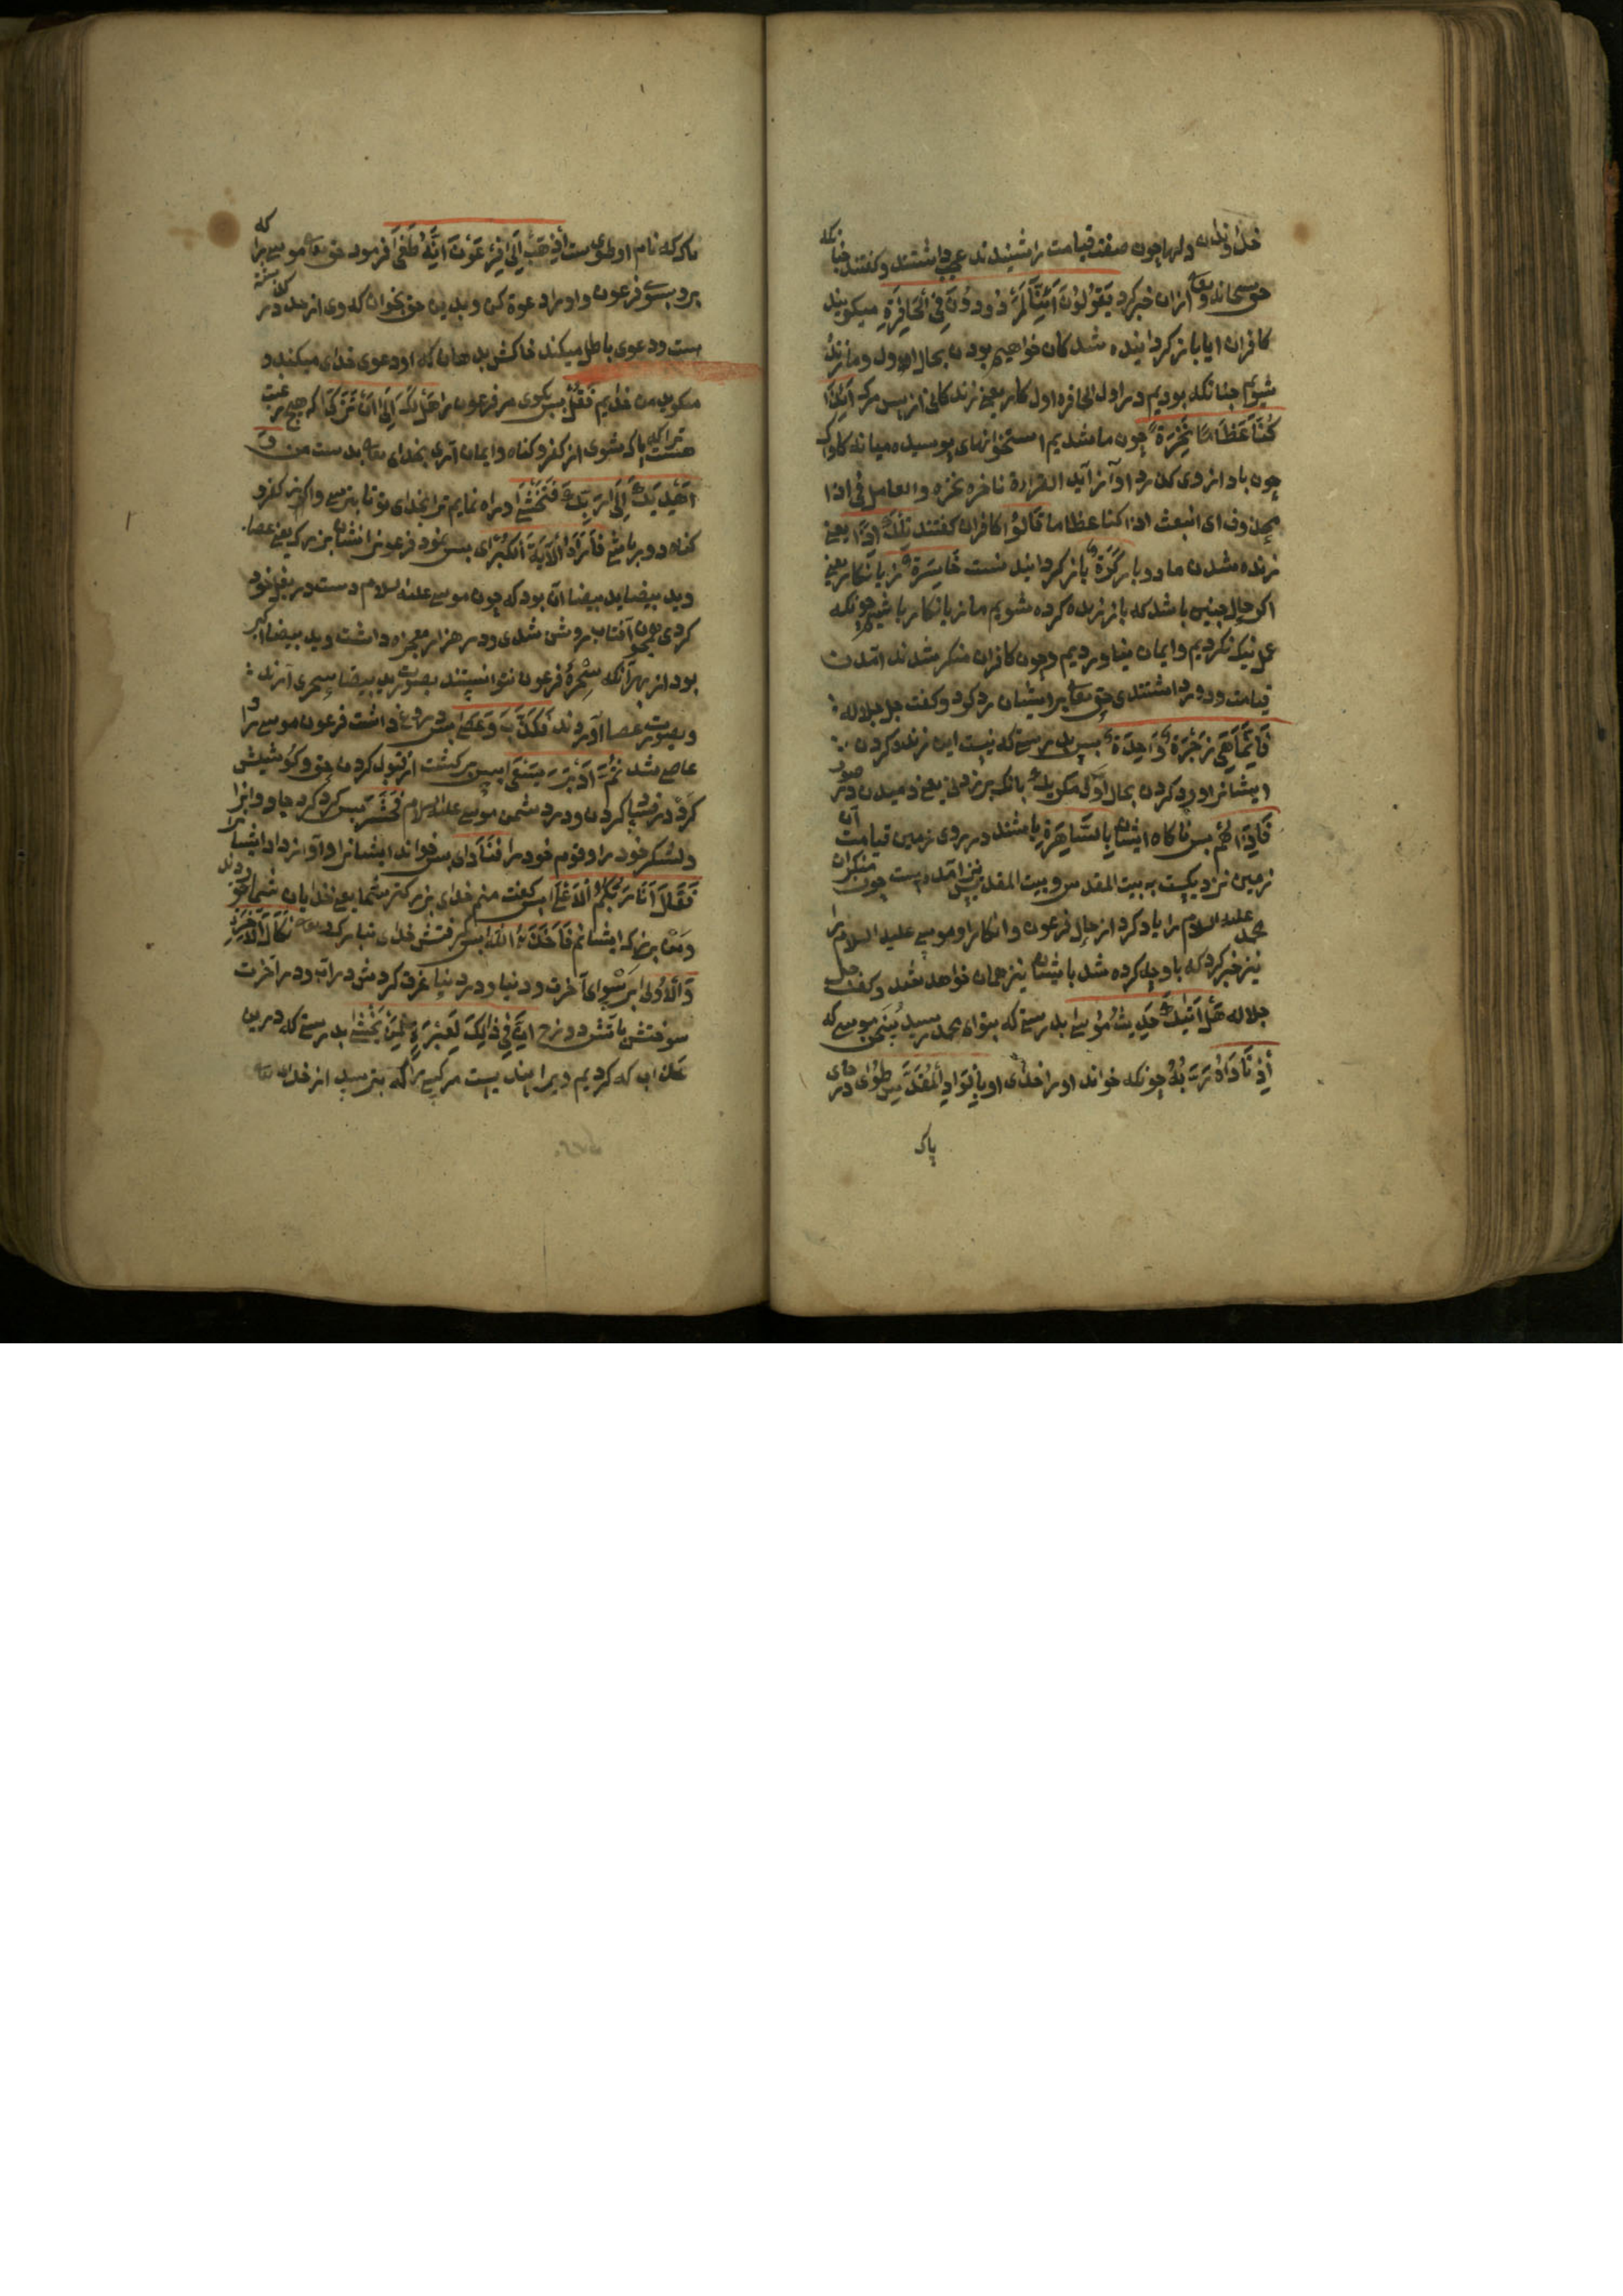 خداوندان دلها چون صفت قیامت را شنیدند عجب داشتند و کفتند چنانکه
حق سبحانه و تعالی ازان خبر کرد یَقُولُونَ اَئِنَّا لَمَرْدُودُونَ فِی الْحَافِرَةِ میکویند
کافران ایا باز کردانیده شدکان خواهیم بودن بحال اول و ما زنده
شویم جنانکه بودیم در اول الحافره اول کار یعنی زندکانی از پس مرک اَئِذَا
کُنَّا عِظَامًا نَخِرَةً چون ما شدیم استخوانهای پوسیده میانه کاواک
چون باد از وی کذرد آواز آید القراءة ناخره نخره والعامل فی اذا
محذوف ای انبعث اذا کنا عظاما قَالُوا کافران کفتند تِلْکَ اِذًا یعنی
زنده شدن ما دوبار کَرَّةٌ باز کردانید نست خَاسِرَةٌ زیانکار یعنی
اکر حال چنین باشد که باز زنده کرده شویم ما زیانکار باشیم چونکه
عمل نیک نکردیم و ایمان نیاوردیم و چون کافران منکر شدند آمدن
قیامت و دور داشتندی حق تعالی بر ایشان رد کرد و کفت جل جلاله
فَاِنَّمَا هِیَ زَجْرَةٌ وَاحِدَةٌ پس بدرستی که نیست این زنده کردن
ایشانرا و رد کردن بحال اول مکر یک بانک بر زدنی یعنی دمیدن در صور
فَاِذَا هُمْ پس ناکاه ایشان بِالسَّاهِرَةِ باشند در روی زمین قیامت آن
زمین نزدیکست به بیت المقدس و بیت المقدس نیز آمده است چون منکران
محمد علیه السلام را یاد کرد از حال فرعون و انکار او موسی علیه السلام را
نیز خبر کرد که باو چه کرده شد با ایشان نیز همان خواهد شد و کفت جل
جلاله هَلْ اَتٰیکَ حَدِیثُ مُوسٰی بدرستی که بتو ای محمد رسید سخن موسی که
اِذْ نَادَاهُ رَبُّهُ چونکه خواند او را خدای او بِالْوَادِ الْمُقَدَّسِ طُوًی در وادی
پاک
پاک که نام او طوی ست اِذْهَبْ اِلٰی فِرْعَوْنَ اِنَّهُ طَغٰی فرمود حق تعالی موسی را که
برو بسوی فرعون و او را دعوة کن و بدین حق بخوان که وی از حد در کذشته
است و دعوی باطل میکند خاکش بدهان که او دعوی خدای میکند و
میکوید من خدایم فَقُلْ پس بکوی مر فرعون را هَلْ لَکَ اِلٰی اَنْ تَزَکّٰی که هیچ رغبت
هست ترا که پاک شوی از کفر و کناه و ایمان آری بخدای تعالی بدست من وَ
اَهْدِیَکَ اِلٰی رَبِّکَ فَتَخْشٰی و راه نمایم ترا بخدای تو تا بترسی و از کفر و
کناه دور باشی فَاَرٰاهُ الْاٰیَةَ الْکُبْرٰی پس نمود فرعون را نشان بزرک یعنی عصا
و ید بیضا ید بیضا آن بود که چون موسی علیه السلام دست در بغل خود
کردی همچون آفتاب روشن شدی و در هزار معجزه داشت و ید بیضا اکبر
بود از بهر آنکه سَحَرَۀ فرعون نتوانستند بصورت ید بیضا سحری آرند
و بصورت عصا آوردند فَکَذَّبَ وَ عَصٰی پس دروغ داشت فرعون موسی را و
عاصی شد ثُمَّ اَدْبَرَ یَسْعٰی پس برکشت از قبول کردن حق و کوشش
کرد در فساد کردن و در دشمنی موسی علیه السلام فَحَشَرَ پس کرد کرد جادوانرا
و لشکر خود را و قوم خود را فَنَادٰی پس خواند ایشانرا و آواز داد ایشانرا
فَقَالَ اَنَا رَبُّکُمُ الْاَعْلٰی پس کفت منم خدای بزرکتر شما یعنی خدایان شما خورداند
و من بزرکه ایشانم فَاَخَذَهُ اللّٰهُ پس کرفتش خدای تبارک و تعالی نَکَالَ الْاٰخِرَةِ
وَالْاُولٰی برسوای آخرت و دنیا و در دنیا غرق کردش در آب و در آخرت
سوختش بآتش دوزخ اِنَّ فِی ذٰلِکَ لَعِبْرَةً لِمَنْ یَخْشٰی بدرستی که درین
عذاب که کردیم ویرا پندیست مر کسی را که بترسد از خدای تعالی